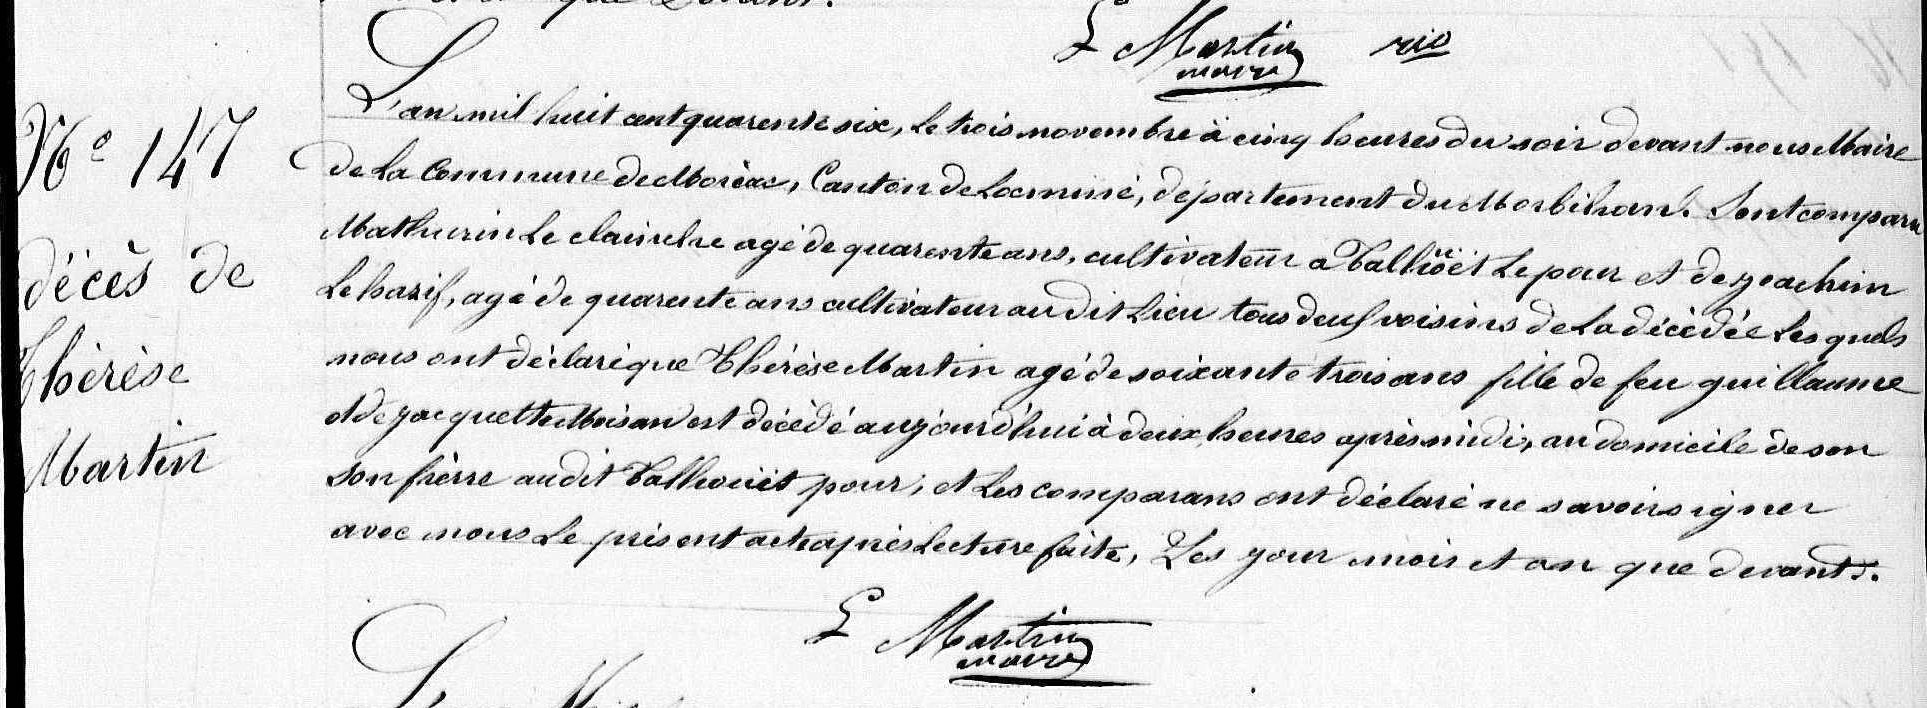 que devant.
E Martin rio
maire
N° 147
décès de
Thérèse
Martin
L'an mil huit cent quarente six, le trois novembre à cinq heures du soir devant nous Maire
de la Commune de Moréac, Canton de Locminé, département du Morbihan. Sont comparu
Mathurin Le clainche agé de quarente ans, cultivateur a Talhöët Le pour et de joachim
Le harif, agé de quarente ans cultivateur au dit Lieu tous deux voisins de la décèdée Les quels
nous ont déclaré que Thérèse Martin agé de soixante trois ans fille de feu guillaume
et de jacquette Moisan est décèdé aujourd'hui à deux heures après midi, au domicile de son
son frère audit Talhouët pour, et Les comparans ont déclaré ne savoir signer
avec nous Le présent acte après Lecture faite, Les jour mois et an que devant.
E Martin
maire